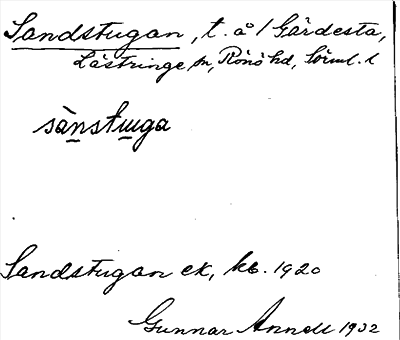 Sandstugan, t. å / Gärdesta,
Lästringe sn, Rönö hd, Sörml. l
sànstuga
Sandstugan ek, kb. 1920
Gunnar Annell 1932